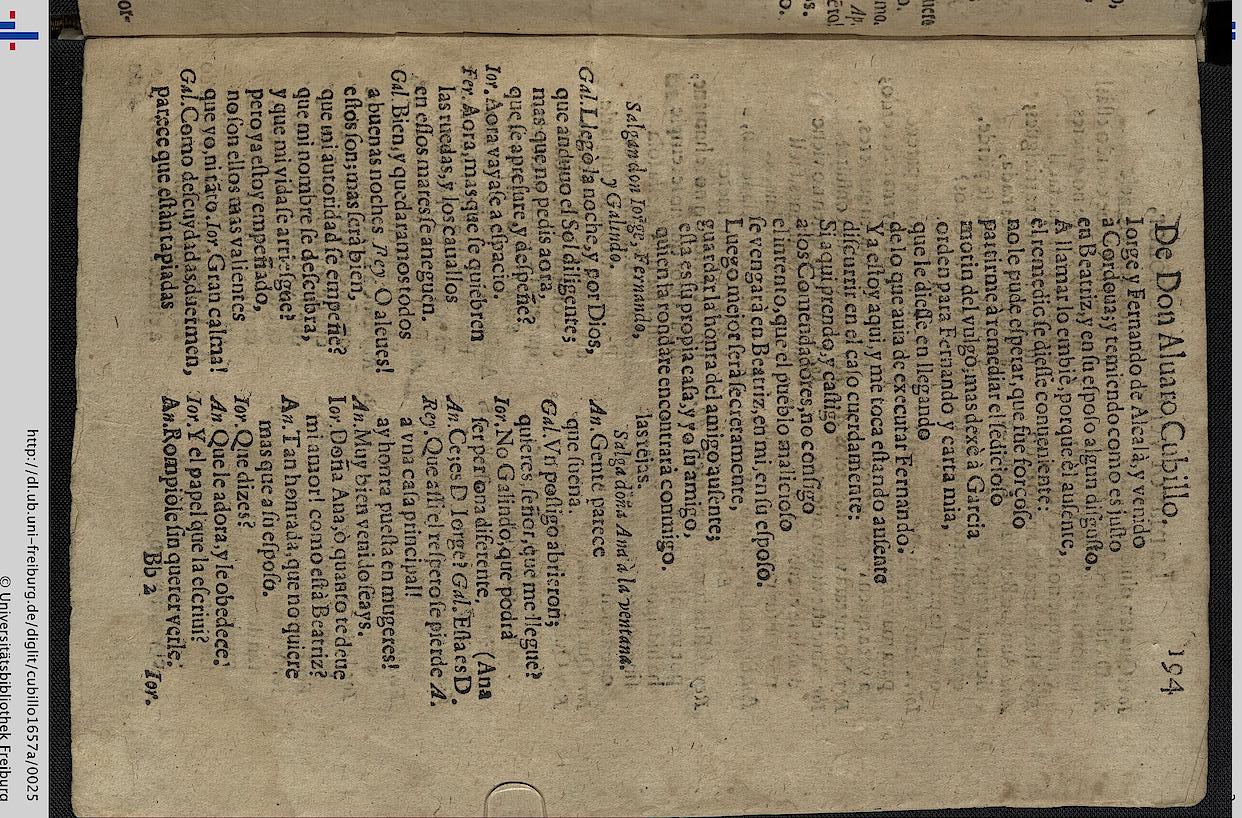 De Don Aluaro Cubillo.
194
Iorge y Fernando de Alcalà, y venido
à Cordoua: y temiendo como es justo
en Beatriz, y en su esposo algun disgusto,
A llamarlo embiè, porque èl ausente,
el remedio se diesse conueniente:
no le pude esperar, que fue forçoso
partirme à remediar el sedicioso
motin del vulgo, mas dexè à Garcia
orden para Fernando y carta mia,
que le diesse en llegando
de lo que auia de executar Fernando.
Ya estoy aqui, y me toca estando ausente
discurrir en el caso cuerdamente:
Si aqui prendo, y castigo
a los Comendadores, no consigo
el intento, que el pueblo malicioso
se vengarà en Beatriz, en mi, en su esposo.
Luego mejor serà secretamente,
guardar la honra del amigo ausente;
esta es su propia casa, y yo su amigo,
quien la rondare encontrarà conmigo.
Salgan don Iorge, Fernando,
y Galindo.
Gal. Llegò la noche, y por Dios,
que anduuo el Sol diligente;
mas que no pedis aora,
que se apresure, y despeñe?
Ior. Aora vayase a espacio.
Fer. Aora, mas que se quiebren
las ruedas, y los cauallos
en essos mares se aneguen.
Gal. Bien, y quedaramos todos
a buenas noches Rey. O aleues!
estos son; mas serà bien,
que mi autoridad se empeñe?
que mi nombre se descubra,
y que mi vida se arriesgue?
pero ya estoy empeñado,
no son ellos mas valientes
que yo, ni tãto. Ior. Gran calma!
Gal. Como descuydadas duermen,
parece que estàn tapiadas
las rejas.
Salga doña Ana à la ventana.
An. Gente parece
que suena.
Gal. Vn postigo abrieron;
quieres señor, que me llegue?
Ior. No Galindo, que podrà
ser persona diferente, (Ana
An. Ceres D Iorge? Gal. Esta es D.
Rey. Que assi el respeto se pierde A.
a vna casa principal!
ay honra puesta en mugeres!
An. Muy bien venido seays.
Ior. Doña Ana, ò quanto te deue
mi amor! como està Beatriz?
An. Tan honrada, que no quiere
mas que a su esposo.
Ior. Que dizes?
An Que le adora, y le obedece.
Ior. Y el papel que la escriui?
An. Rompiòle sin querer verle.
Bb 2
Ior.
http://dl.ub.uni-freiburg.de/diglit/cubillo1657a/0025
© Universitätsbibliothek Freiburg